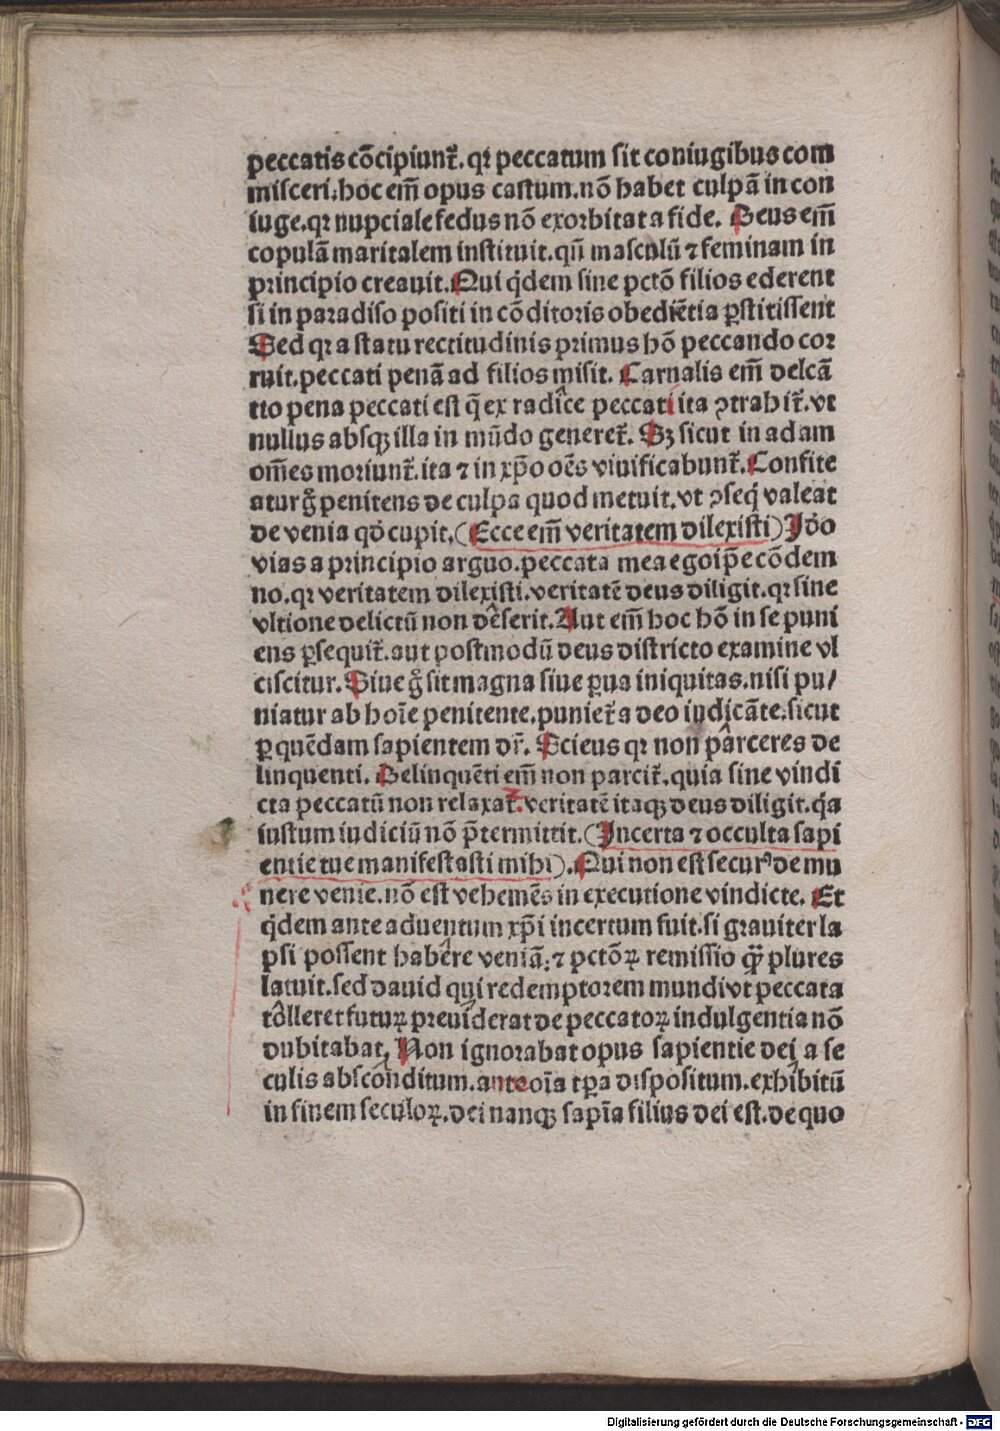 peccatis cōcipiunt᷑. qꝛ peccatum sit coniugibus com
misceri. hoc em̄ opus castum. nō habet culpā in con
iuge. qꝛ nupciale fedus nō exorbitat a fide. Deus em̄
copulā maritalem instituit. qn̄ masculū ⁊ feminam in
principio creauit. Qui q̇dem sine pctō filios ederent
si in paradiso positi in cōditoris obediētia ꝑstitissent
Sed qꝛ a statu rectitudinis primus hō peccando coꝛ
ruit. peccati penā ad filios misit. Carnalis em̄ delcā
tio pena peccati est q̄ ex radice peccati ita ꝯtrahit᷑. vt
nullus absqꝫ illa in mūdo generet᷑. Sꝫ sicut in adam
om̄es moriunt᷑. ita ⁊ in xp̄o oēs viuificabunt᷑. Confite
atur gͦ penitens de culpa quod metuit. vt ꝯseq̇ valeat
de venia qd̓ cupit. (Ecce em̄ veritatem dilexisti) Id̓o
vias a principio arguo. peccata mea ego ip̄e cōdem
no. qꝛ veritatem dilexisti. veritatē deus diligit. qꝛ sine
vltione delictū non deserit. Aut em̄ hoc hō in se puni
ens ꝑsequit᷑. aut postmodū deus districto examine vl
ciscitur. Siue gͦ sit magna siue ꝑua iniquitas. nisi pu/
niatur ab hoīe penitente. puniet᷑ a deo iudicāte. sicut
ꝑ quēdam sapientem dr̄. Scieus qꝛ non parceres de
linquenti. Delinquēti em̄ non parcit᷑. quia sine vindi
cta peccatū non relaxat᷑. veritatē itaqꝫ deus diligit. q̇a
iustum iudiciū nō p̄termittit. (Incerta ⁊ occulta sapi
entie tue manifestasti mihi). Qui non est securꝰ de mu
nere venie. nō est vehemēs in executione vindicte. Et
q̇dem ante aduentum xp̄i incertum fuit. si grauiter la
psi possent habere veniā: ⁊ pctōꝝ remissio qᷓꝫ plures
latuit. sed dauid qui redemptorem mundi vt peccata
tolleret futuꝝ preuiderat de peccatoꝝ indulgentia nō
dubitabat, Non ignorabat opus sapientie dei a se
culis absconditum. ante oīa tꝑa dispositum. exhibitū
in finem seculoꝝ. dei nanqꝫ sapīa filius dei est. de quo
Digitalisierung gefördert durch die Deutsche Forschungsgemeinschaft - DFG